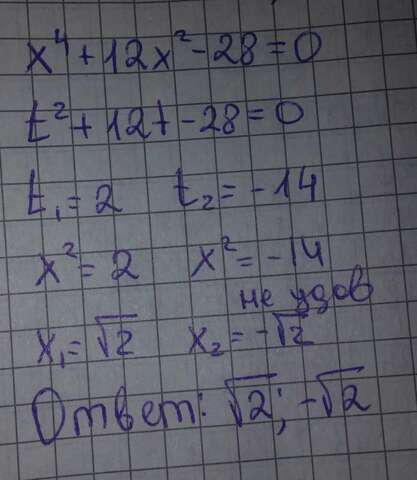 x⁴+12x²-28=0
t²+12t-28=0
t₁=2 t₂=-14
x²=2 x²=-14
не удов
x₁=√2 x₂=-√2
Ответ: √2; -√2